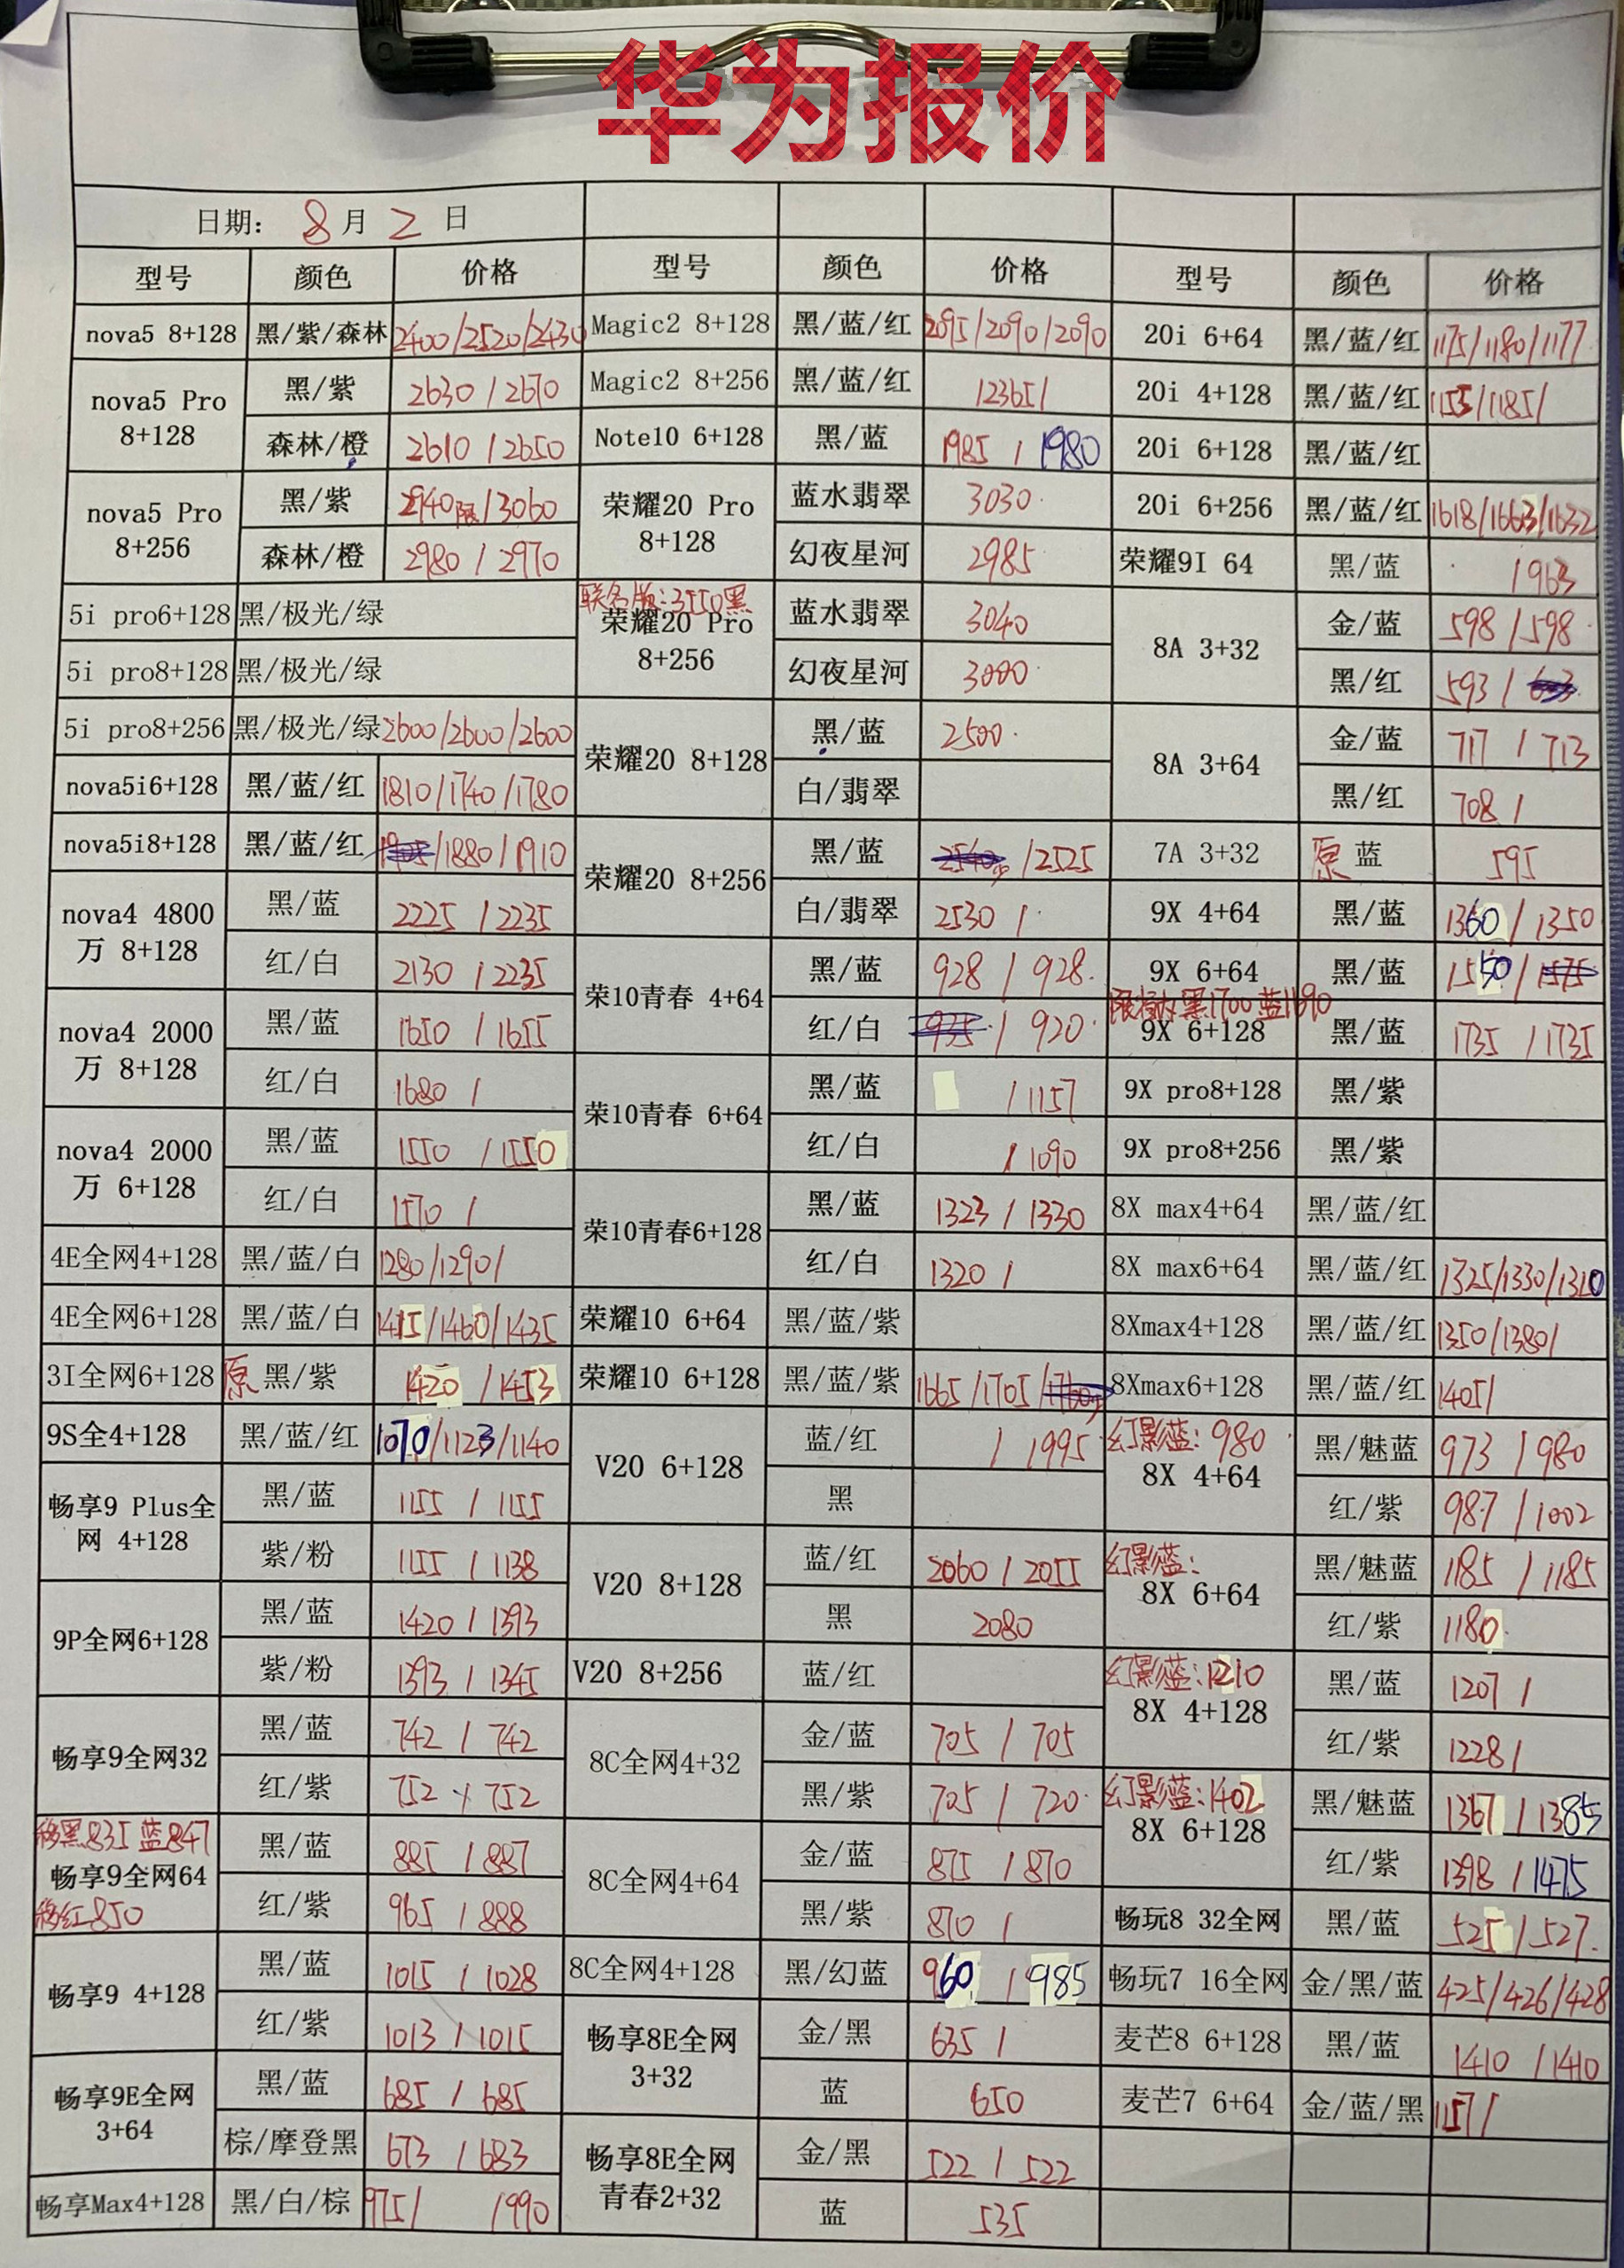 华为报价
日期: 8月2日
型号 颜色 价格 型号 颜色 价格 型号 颜色 价格
nova5 8+128 黑/紫/森林 2400/2520/2430 Magic2 8+128 黑/蓝/红 2095/2090/2090 20i 6+64 黑/蓝/红 1175/1180/1177
nova5 Pro 8+128 黑/紫 2630/2670 Magic2 8+256 黑/蓝/红 /2365/ 20i 4+128 黑/蓝/红 1155/1185/
森林/橙 2610/2650 Note10 6+128 黑/蓝 1985/1980 20i 6+128 黑/蓝/红
nova5 Pro 8+256 黑/紫 2940限/3060 荣耀20 Pro 8+128 蓝水翡翠 3030 20i 6+256 黑/蓝/红 1618/1663/1632
森林/橙 2980/2970 幻夜星河 2985 荣耀9I 64 黑/蓝 /963
5i pro6+128 黑/极光/绿 联名版:3550黑 荣耀20 Pro 8+256 蓝水翡翠 3040 8A 3+32 金/蓝 598/598
5i pro8+128 黑/极光/绿 幻夜星河 3000 黑/红 593/
5i pro8+256 黑/极光/绿 2600/2600/2600 荣耀20 8+128 黑/蓝 2500 8A 3+64 金/蓝 717/713
nova5i6+128 黑/蓝/红 1810/1740/1780 白/翡翠 黑/红 708/
nova5i8+128 黑/蓝/红 1905/1880/1910 荣耀20 8+256 黑/蓝 /2525 7A 3+32 原 蓝 595
nova4 4800万 8+128 黑/蓝 2225/2235 白/翡翠 2530/ 9X 4+64 黑/蓝 1360/1350
红/白 2130/2235 荣10青春 4+64 黑/蓝 928/928 9X 6+64 黑/蓝 1550/1575
nova4 2000万 8+128 黑/蓝 1650/1655 红/白 935/920 黑1700 蓝1690 9X 6+128 黑/蓝 1735/1735
红/白 1680/ 荣10青春 6+64 黑/蓝 /1157 9X pro8+128 黑/紫
nova4 2000万 6+128 黑/蓝 1550/1550 红/白 /1090 9X pro8+256 黑/紫
红/白 1570/ 荣10青春6+128 黑/蓝 1323/1330 8X max4+64 黑/蓝/红
4E全网4+128 黑/蓝/白 1280/1290/ 红/白 1320/ 8X max6+64 黑/蓝/红 1325/1330/1310
4E全网6+128 黑/蓝/白 1415/1460/1435 荣耀10 6+64 黑/蓝/紫 8Xmax4+128 黑/蓝/红 1350/1380/
3I全网6+128 原 黑/紫 1420/1453 荣耀10 6+128 黑/蓝/紫 1665/1705/ 8Xmax6+128 黑/蓝/红 1405/
9S全4+128 黑/蓝/红 1070/1123/1140 V20 6+128 蓝/红 /1995 幻影蓝:980 8X 4+64 黑/魅蓝 973/980
畅享9 Plus全网 4+128 黑/蓝 1155/1155 黑 红/紫 987/1002
紫/粉 1155/1138 V20 8+128 蓝/红 2060/2055 幻影蓝: 8X 6+64 黑/魅蓝 1185/1185
9P全网6+128 黑/蓝 1420/1393 黑 2080 红/紫 1180
紫/粉 1393/1345 V20 8+256 蓝/红 幻影蓝:1210 8X 4+128 黑/蓝 1207/
畅享9全网32 黑/蓝 742/742 8C全网4+32 金/蓝 705/705 红/紫 1228/
红/紫 752/752 黑/紫 705/720 幻影蓝:1402 8X 6+128 黑/魅蓝 1367/1385
移黑835 蓝847 畅享9全网64 移红850 黑/蓝 885/887 8C全网4+64 金/蓝 875/870 红/紫 1398/1475
红/紫 965/888 黑/紫 870/ 畅玩8 32全网 黑/蓝 525/527
畅享9 4+128 黑/蓝 1015/1028 8C全网4+128 黑/幻蓝 960/985 畅玩7 16全网 金/黑/蓝 425/426/428
红/紫 1013/1015 畅享8E全网 3+32 金/黑 635/ 麦芒8 6+128 黑/蓝 1410/1410
畅享9E全网 3+64 黑/蓝 685/685 蓝 650 麦芒7 6+64 金/蓝/黑 1157/
棕/摩登黑 673/683 畅享8E全网青春2+32 金/黑 522/522
畅享Max4+128 黑/白/棕 975/ /990 蓝 535